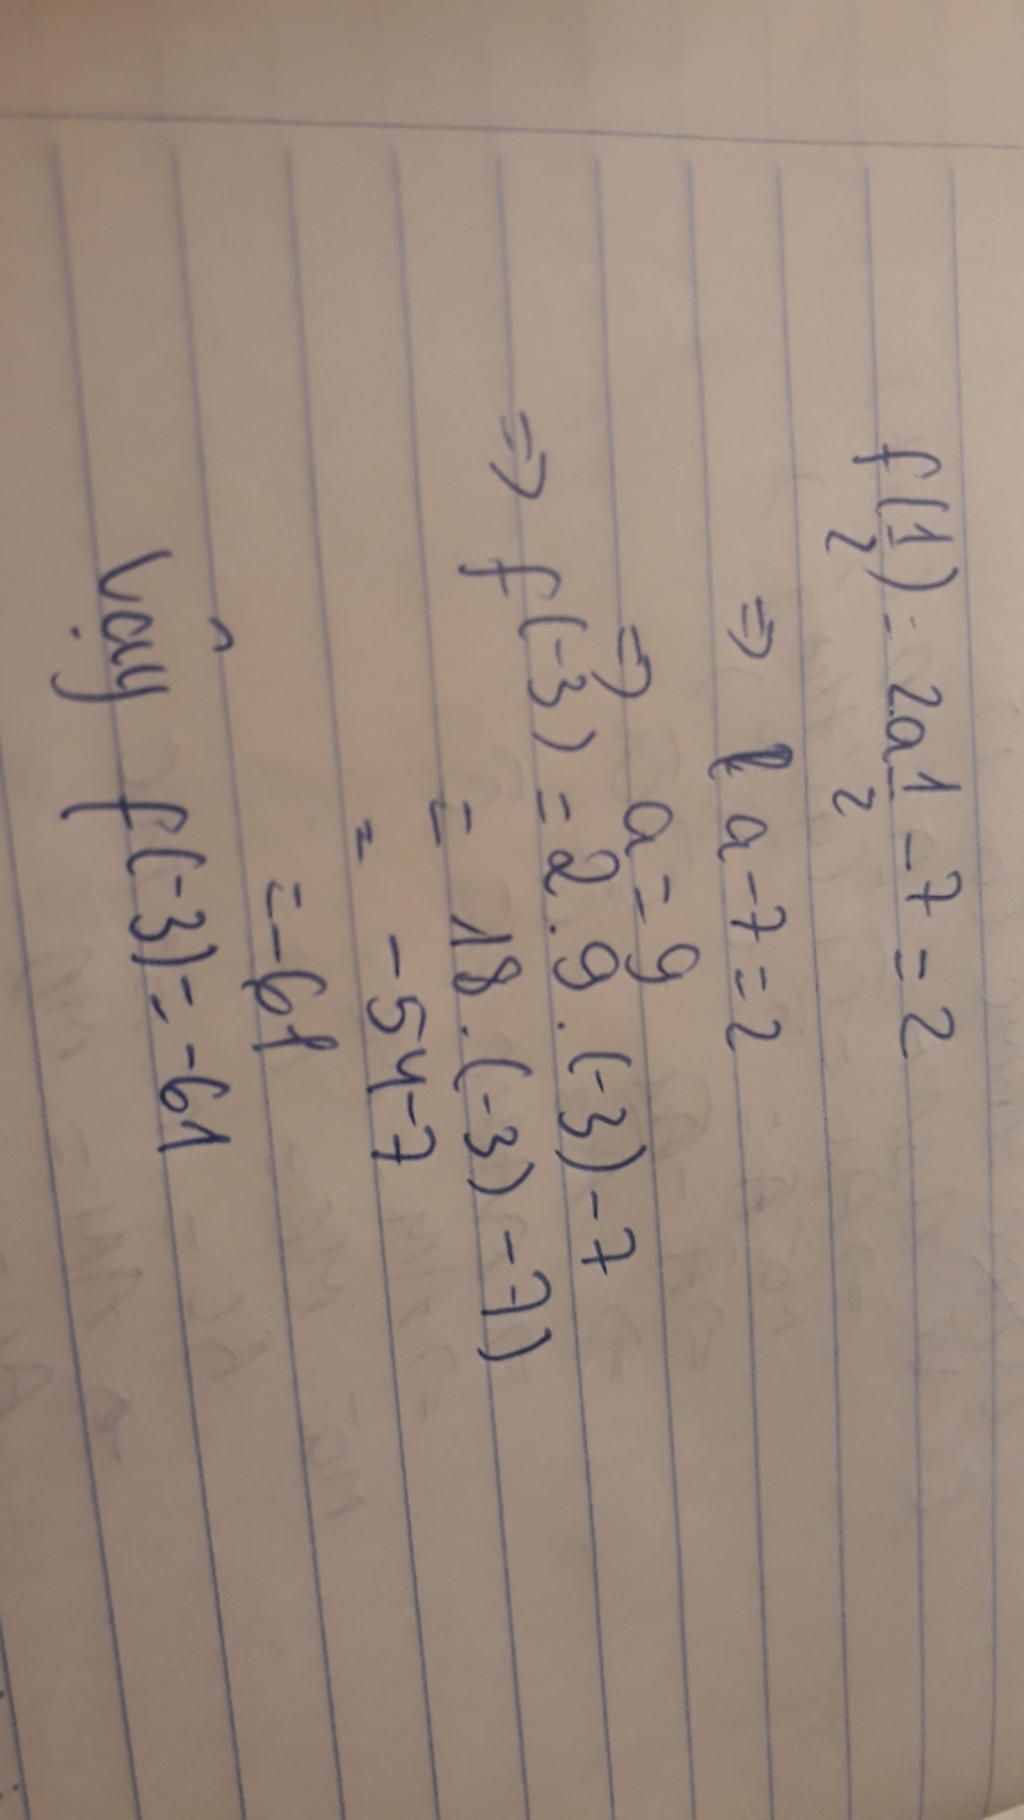 f(1/2) = 2a 1/2 - 7 = 2
=> a - 7 = 2
=> a = 9
=> f(-3) = 2.9.(-3) - 7
= 18.(-3) - 7)
= -54-7
= -61
Vậy f(-3) = -61